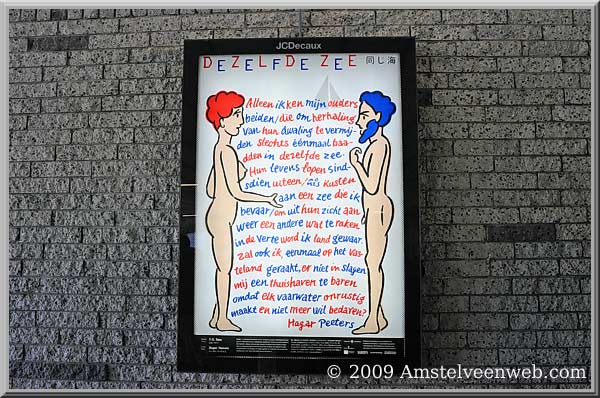 JCDecaux
DEZELFDE ZEE 同じ海
Alleen ik ken mijn ouders
beiden/die om herhaling
van hun dwaling te vermij-
den slechts éénmaal baa-
dden in dezelfde zee.
Hun levens lopen sind-
sdien uiteen/als kusten
aan een zee die ik
bevaar/om uit hun zicht aan
weer een andere wat te raken
in de verte word ik land gewaar.
Zal ook ik, eenmaal op het vas-
teland geraakt, er niet in slagen
mij een thuishaven te baren
omdat elk vaarwater onrustig
maakt en niet meer wil bedaren?
Hagar Peeters
© 2009 Amstelveenweb.com